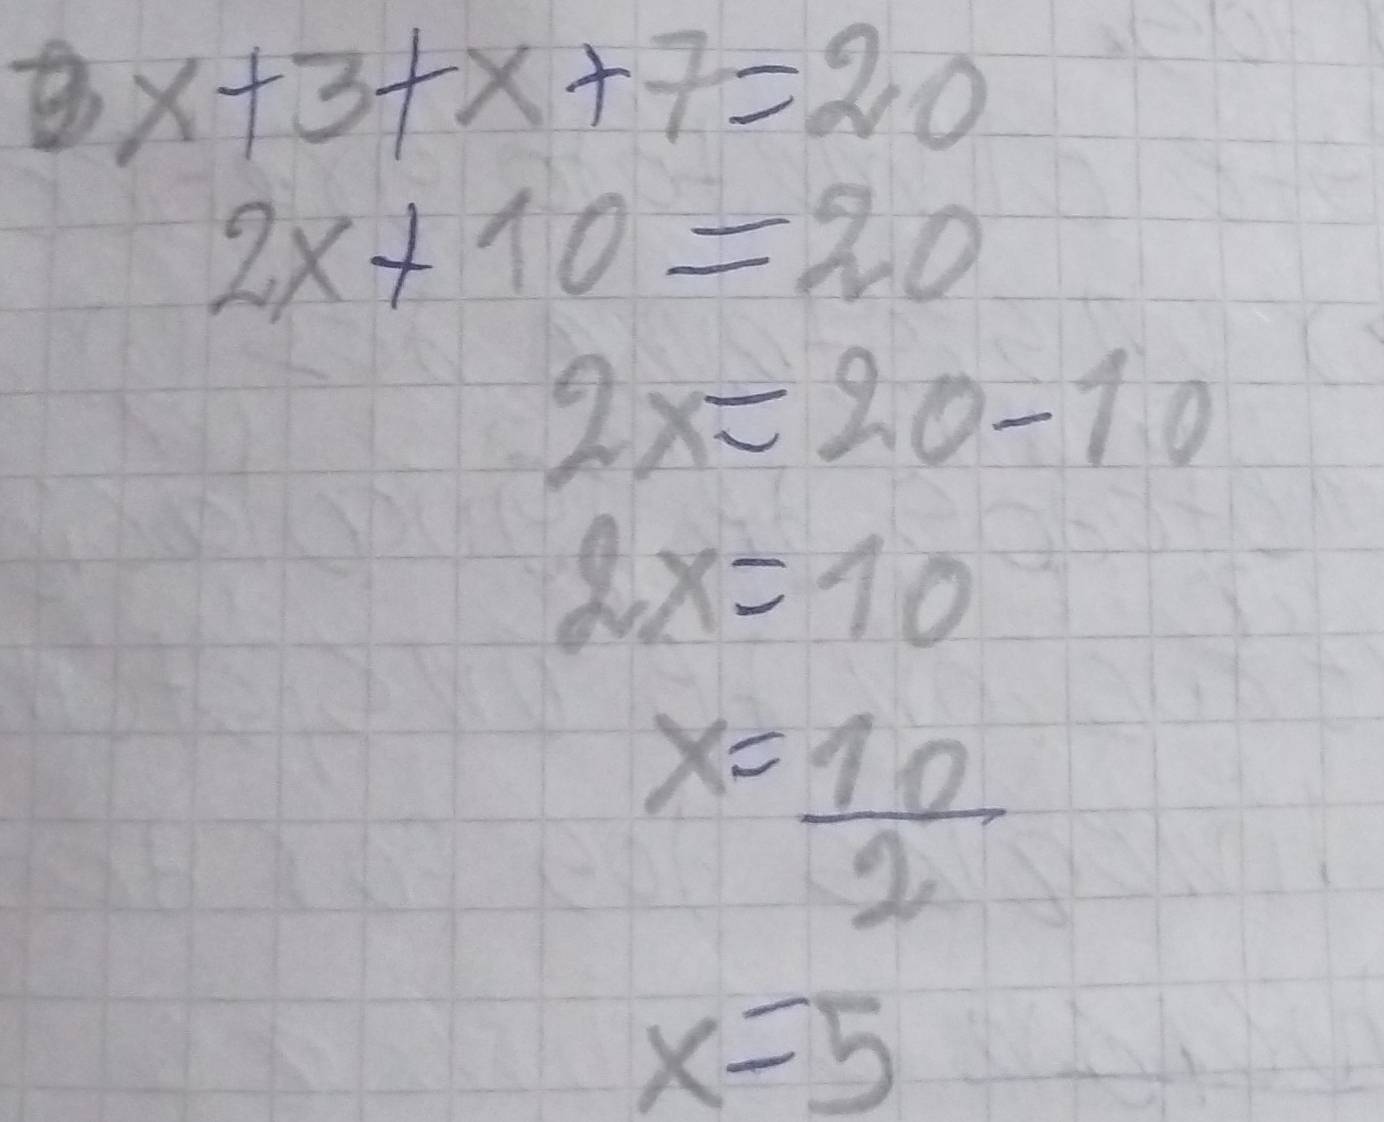 x+3+x+7=20
2x+10=20
2x=20-10
2x=10
x=10/2
x=5